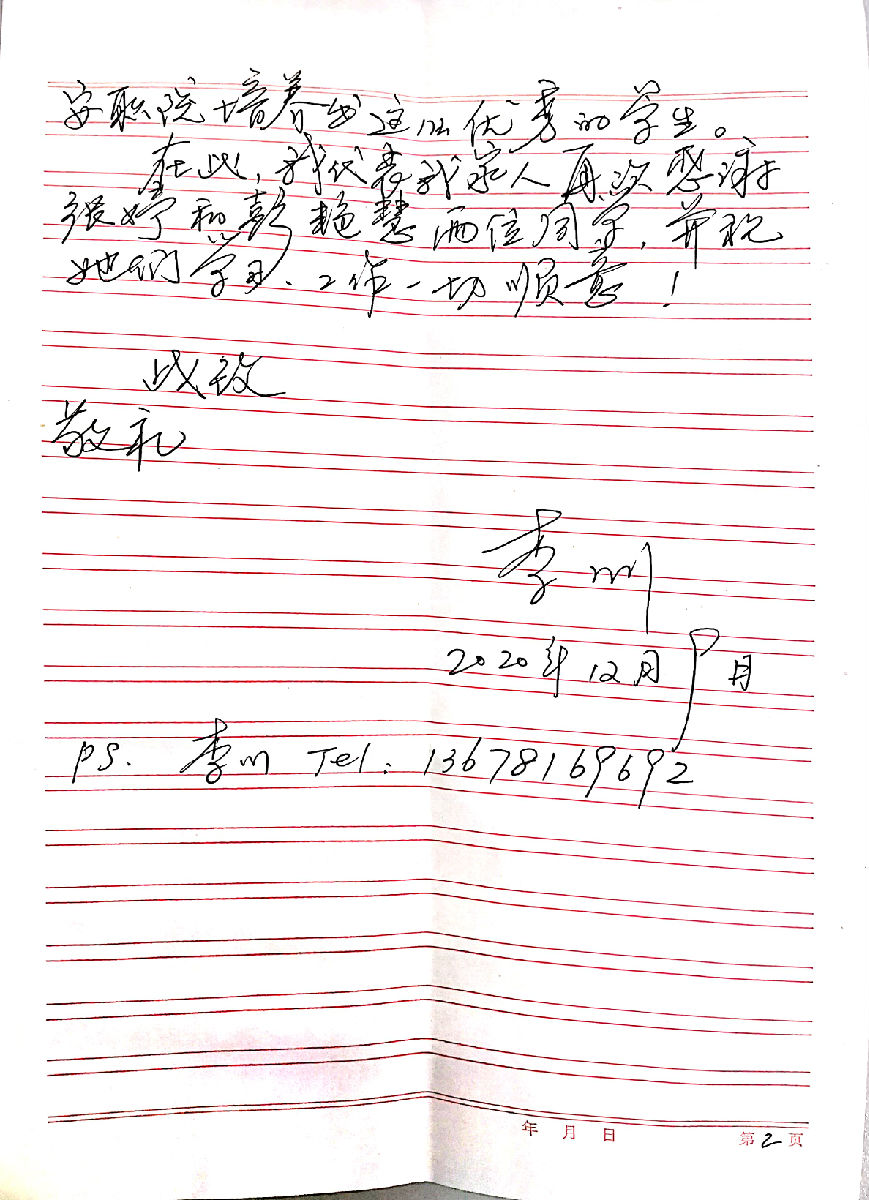 安职院培养出这么优秀的学生。
在此,我代表我家人再次感谢
张婷和彭艳慧两位同学,并祝
她们学习、工作一切顺意!
此致
敬礼
李川
2020年12月9日
PS. 李川 Tel: 13678169692
年 月 日
第2页